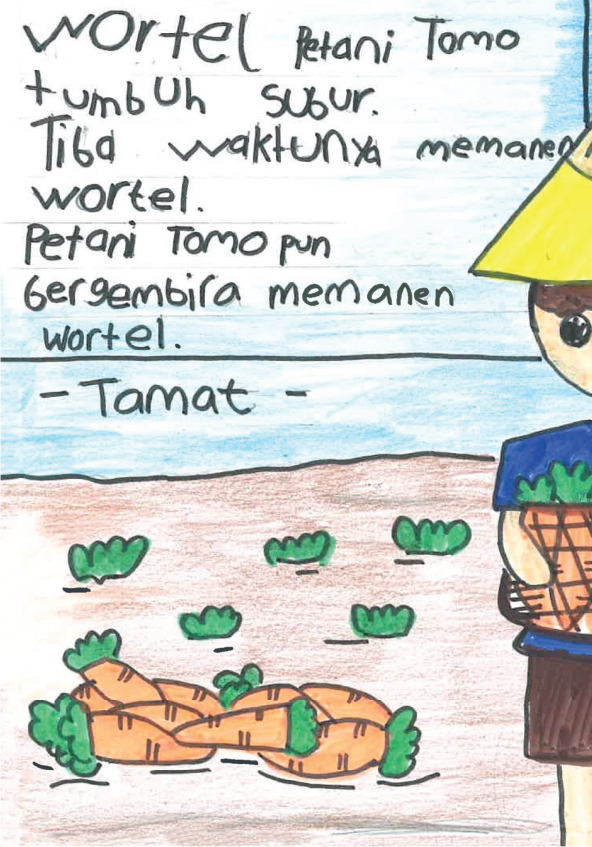 Wortel Petani Tomo
tumbuh subur.
Tiba waktunya memanen
wortel.
Petani Tomo pun
bergembira memanen
wortel.
- Tamat -